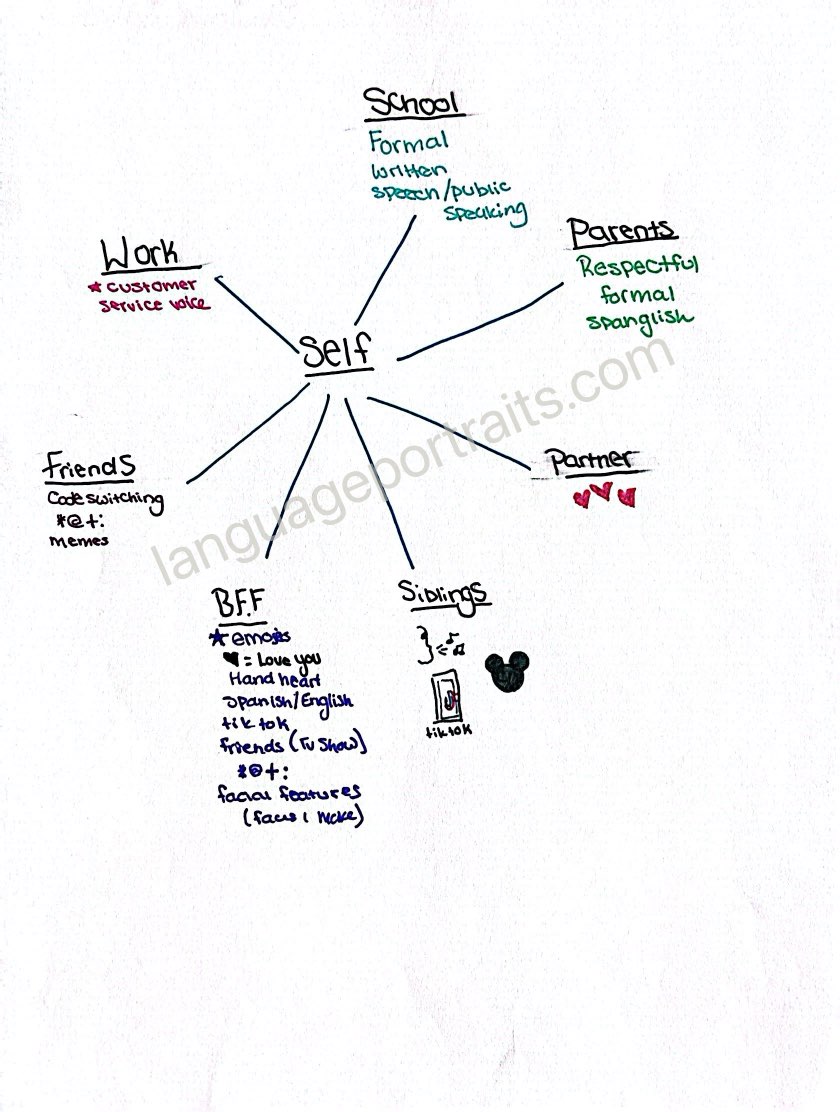 School
Formal
written
speech/public
speaking
Parents
Respectful
formal
spanglish
Work
*customer
service voice
Self
Friends
Code switching
*@+:
memes
Partner
B.F.F
★ emojis
♥ = Love you
Hand heart
Spanish/English
tik tok
friends (TV Show)
*@+:
facial features
(faces I make)
Siblings
tiktok
languageportraits.com